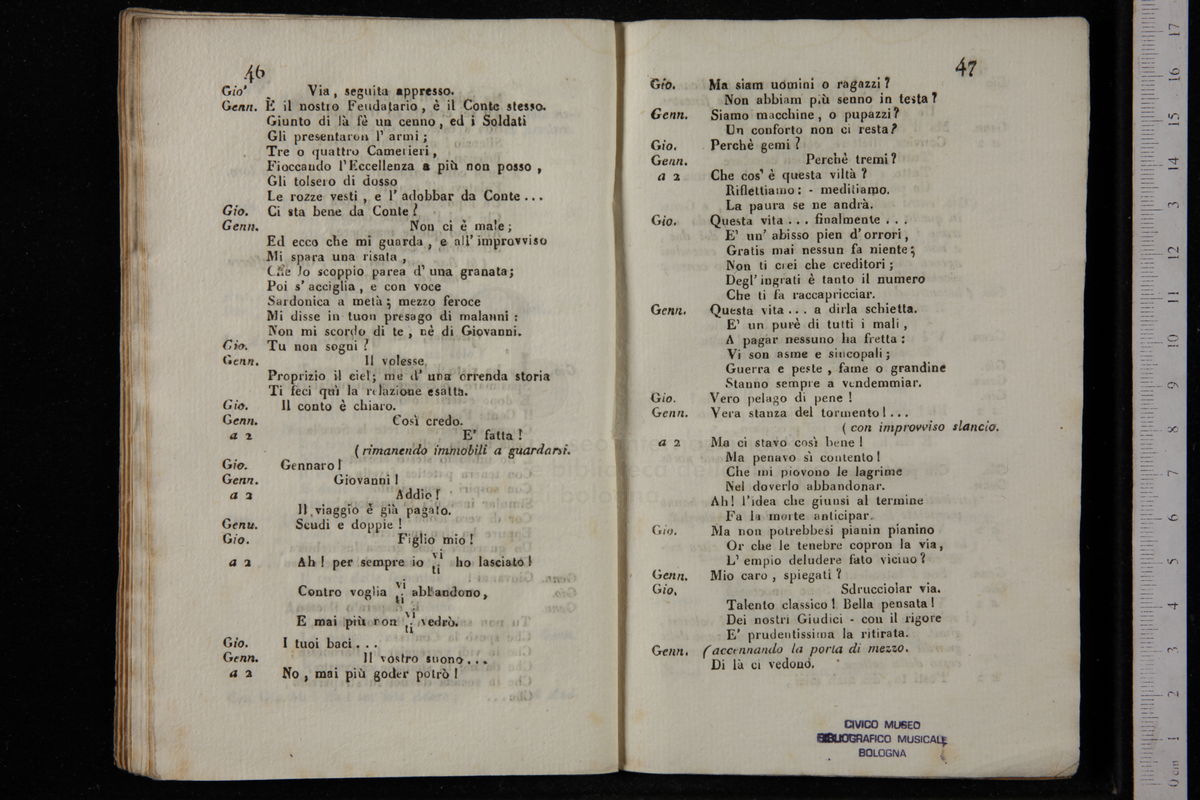 46
Gio' Via, seguita appresso.
Genn. È il nostro Feudatario, è il Conte stesso.
Giunto di là fè un cenno, ed i Soldati
Gli presentaron l' armi;
Tre o quattro Camerieri,
Fioccando l'Eccellenza a più non posso,
Gli tolsero di dosso
Le rozze vesti, e l' adobbar da Conte...
Gio. Ci sta bene da Conte?
Genn. Non ci è male;
Ed ecco che mi guarda, e all' improvviso
Mi spara una risata,
Che lo scoppio parea d' una granata;
Poi s' acciglia, e con voce
Sardonica a metà; mezzo feroce
Mi disse in tuon presago di malanni:
Non mi scordo di te, nè di Giovanni.
Gio. Tu non sogni?
Genn. Il volesse
Proprizio il ciel; me d' una orrenda storia
Ti feci quì la relazione esatta.
Gio. Il conto è chiaro.
Genn. Così credo.
a 2 E' fatta!
(rimanendo immobili a guardarsi.
Gio. Gennaro!
Genn. Giovanni!
a 2 Addio!
Il viaggio è già pagato.
Genu. Scudi e doppie!
Gio. Figlio mio!
a 2 Ah! per sempre io vi ti ho lasciato!
Contro voglia vi ti abbandono,
E mai più non vi ti vedrò.
Gio. I tuoi baci...
Genn. Il vostro suono...
a 2 No, mai più goder potrò!
47
Gio. Ma siam uomini o ragazzi?
Non abbiam più senno in testa?
Genn. Siamo macchine, o pupazzi?
Un conforto non ci resta?
Gio. Perchè gemi?
Genn. Perchè tremi?
a 2 Che cos' è questa viltà?
Riflettiamo: - meditiamo.
La paura se ne andrà.
Gio. Questa vita... finalmente...
E' un' abisso pien d' orrori,
Gratis mai nessun fa niente;
Non ti crei che creditori;
Degl' ingrati è tanto il numero
Che ti fa raccapricciar.
Genn. Questa vita... a dirla schietta.
E' un purè di tutti i mali,
A pagar nessuno ha fretta:
Vi son asme e sincopali;
Guerra e peste, fame o grandine
Stanno sempre a vendemmiar.
Gio. Vero pelago di pene!
Genn. Vera stanza del tormento!...
(con improvviso slancio.
a 2 Ma ci stavo così bene!
Ma penavo sì contento!
Che mi piovono le lagrime
Nel doverlo abbandonar.
Ah! l'idea che giunsi al termine
Fa la morte anticipar.
Gio. Ma non potrebbesi pianin pianino
Or che le tenebre copron la via,
L' empio deludere fato vicino?
Genn. Mio caro, spiegati?
Gio. Sdrucciolar via.
Talento classico! Bella pensata!
Dei nostri Giudici - con il rigore
E' prudentissima la ritirata.
Genn. (accennando la porta di mezzo.
Di là ci vedono.
CIVICO MUSEO
BIBLIOGRAFICO MUSICALE
BOLOGNA